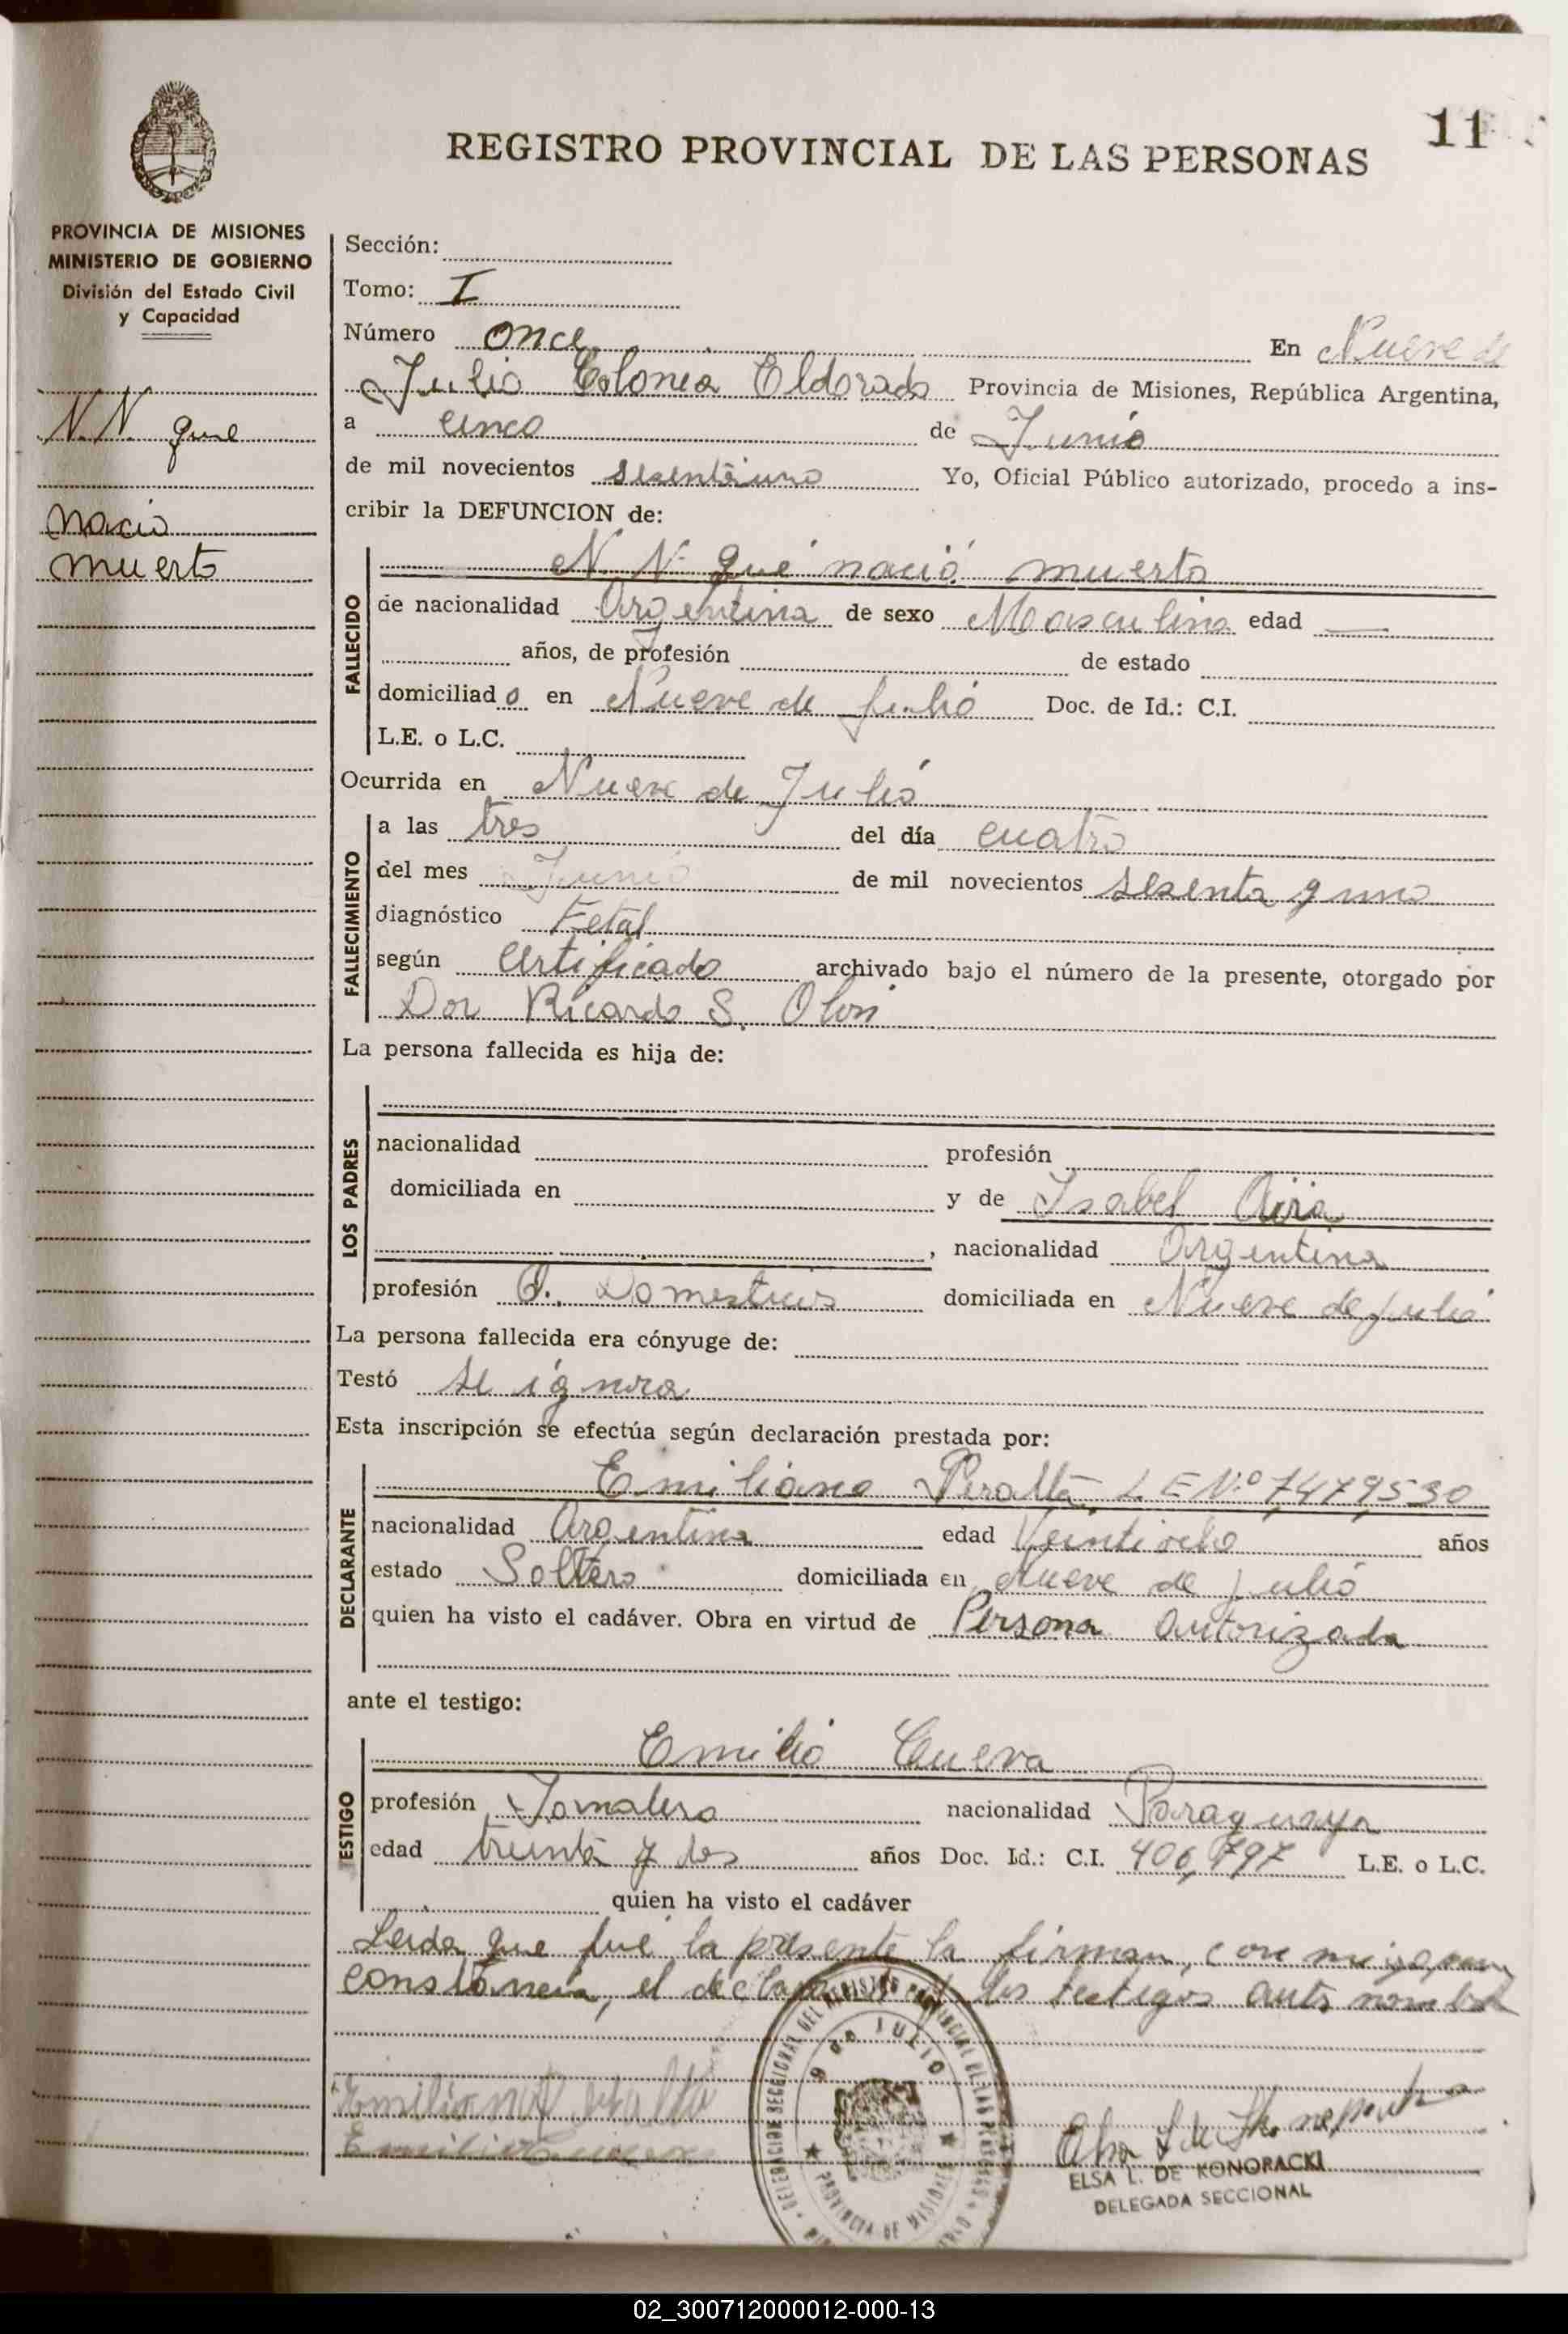 11
REGISTRO PROVINCIAL DE LAS PERSONAS
PROVINCIA DE MISIONES
MINISTERIO DE GOBIERNO
División del Estado Civil
y Capacidad
N.N. que
nació
muerto
Sección:
Tomo: I
Número once En Nueve de
Julio Colonia Eldorado Provincia de Misiones, República Argentina,
a cinco de Junio
de mil novecientos sesentaiuno Yo, Oficial Público autorizado, procedo a ins-
cribir la DEFUNCION de:
N. N. que nació muerto
FALLECIDO
de nacionalidad Argentina de sexo Masculino edad —
años, de profesión de estado
domiciliado en Nueve de Julio Doc. de Id.: C.I.
L.E. o L.C.
Ocurrida en Nueve de Julio
FALLECIMIENTO
a las tres del día cuatro
del mes Junio de mil novecientos sesenta y uno
diagnóstico Fetal
según certificado archivado bajo el número de la presente, otorgado por
Dor Ricardo S.
La persona fallecida es hija de:
LOS PADRES
nacionalidad profesión
domiciliada en y de Isabel
, nacionalidad Argentina
profesión Q. Domesticos domiciliada en Nueve de Julio
La persona fallecida era cónyuge de:
Testó se ignora
Esta inscripción se efectúa según declaración prestada por:
Emiliano Peralta L E Nº 7,479,530
DECLARANTE
nacionalidad Argentina edad Veintiocho años
estado Soltero domiciliada en Nueve de Julio
quien ha visto el cadáver. Obra en virtud de Persona autorizada
ante el testigo:
Emilio Cueva
TESTIGO
profesión Jornalero nacionalidad Paraguaya
edad treinta y dos años Doc. Id.: C.I. 406,797 L.E. o L.C.
quien ha visto el cadáver
Leida que fué la presente la firman, con migo, para
constancia, el los testigos ante
Emiliano Peralta
Emilio Cueva
DELEGACION SECCIONAL DEL REGISTRO PROVINCIAL DE LAS PERSONAS
9 de JULIO
PROVINCIA DE MISIONES
ELSA L. DE KONOPACKI
DELEGADA SECCIONAL
02_300712000012-000-13